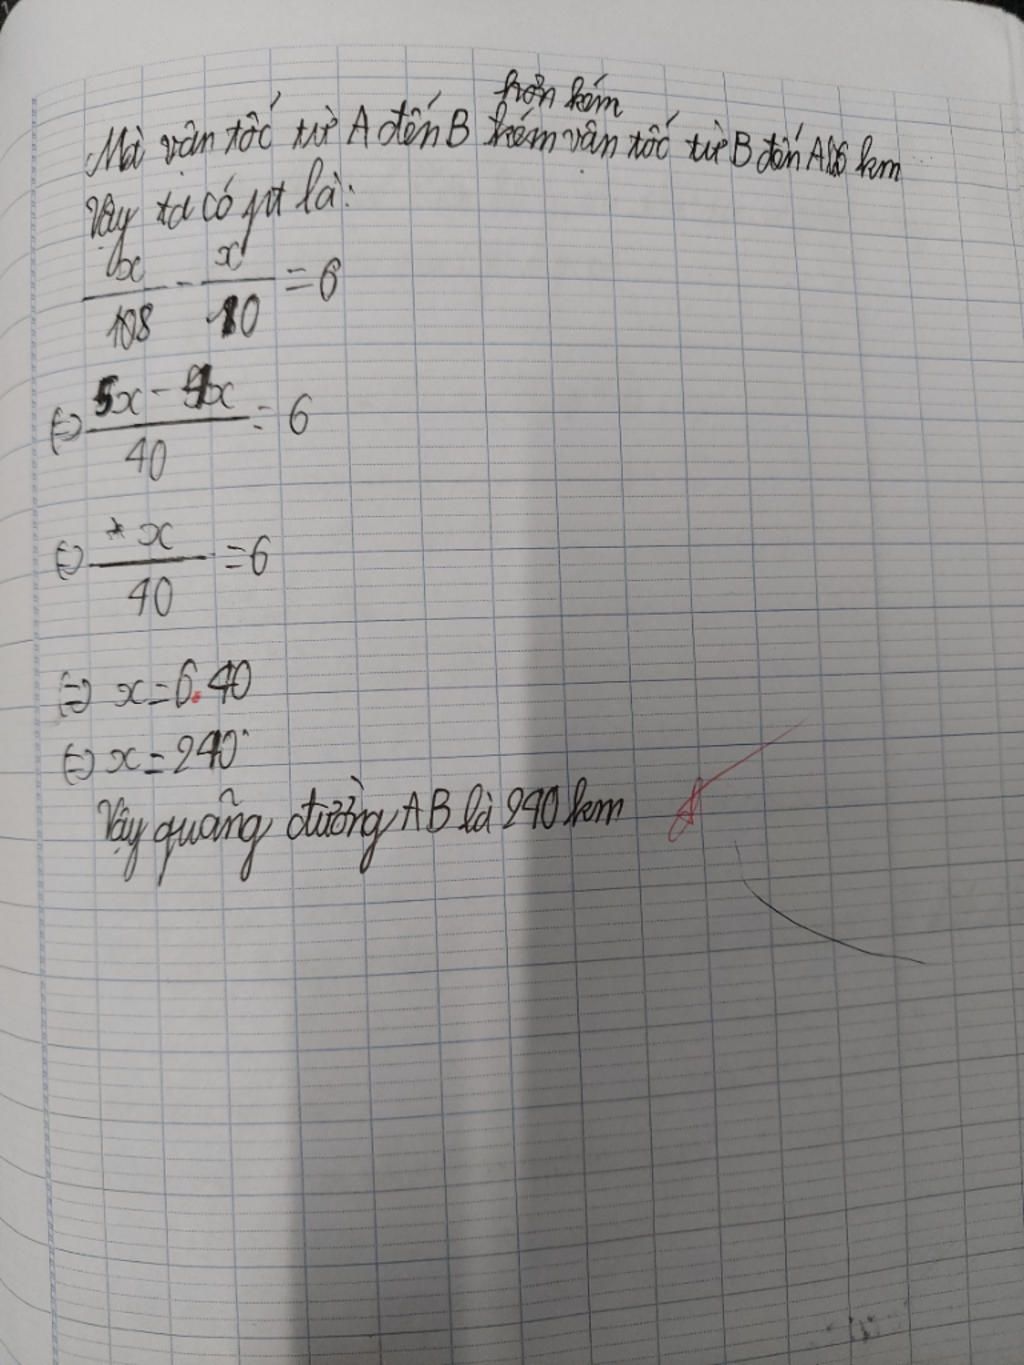 hơn kém
Mà vận tốc từ A đến B kém vân tốc từ B đến A là 6 km
Vậy ta có pt là:
x/108 - x/10 = 6
⇔ 5x - 4x/40 = 6
⇔ x/40 = 6
⇔ x = 6.40
⇔ x = 240
Vậy quãng đường AB là 240 km